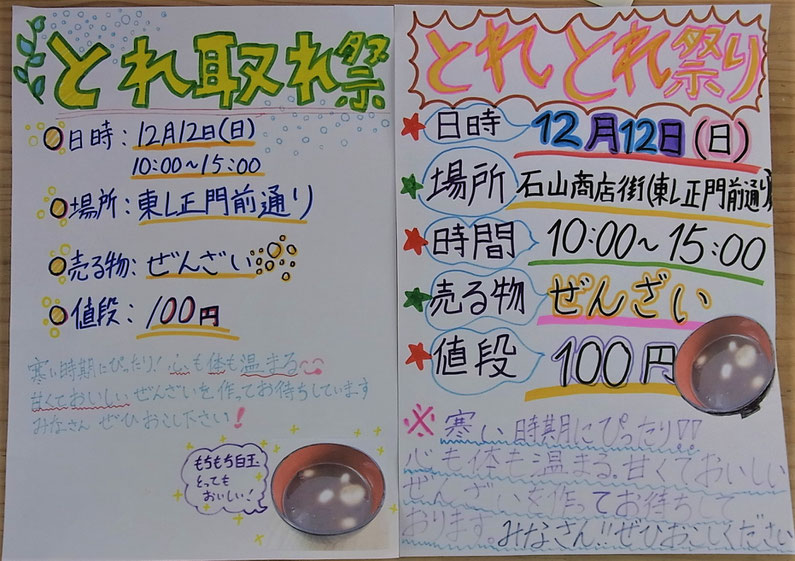 とれ取れ祭
日時：12月12日(日)
10:00～15:00
場所：東レ正門前通り
売る物：ぜんざい
値段：100円
寒い時期にぴったり！心も体も温まる
甘くておいしいぜんざいを作ってお待ちしています
みなさん ぜひおこし下さい！
もちもち白玉
とっても
おいしい！
とれとれ祭り
日時 12月12日(日)
場所 石山商店街(東レ正門前通り)
時間 10:00～15:00
売る物 ぜんざい
値段 100円
※寒い時期にぴったり!!
心も体も温まる。甘くておいしい
ぜんざいを作ってお待ちして
おります。みなさん!!ぜひおこしください